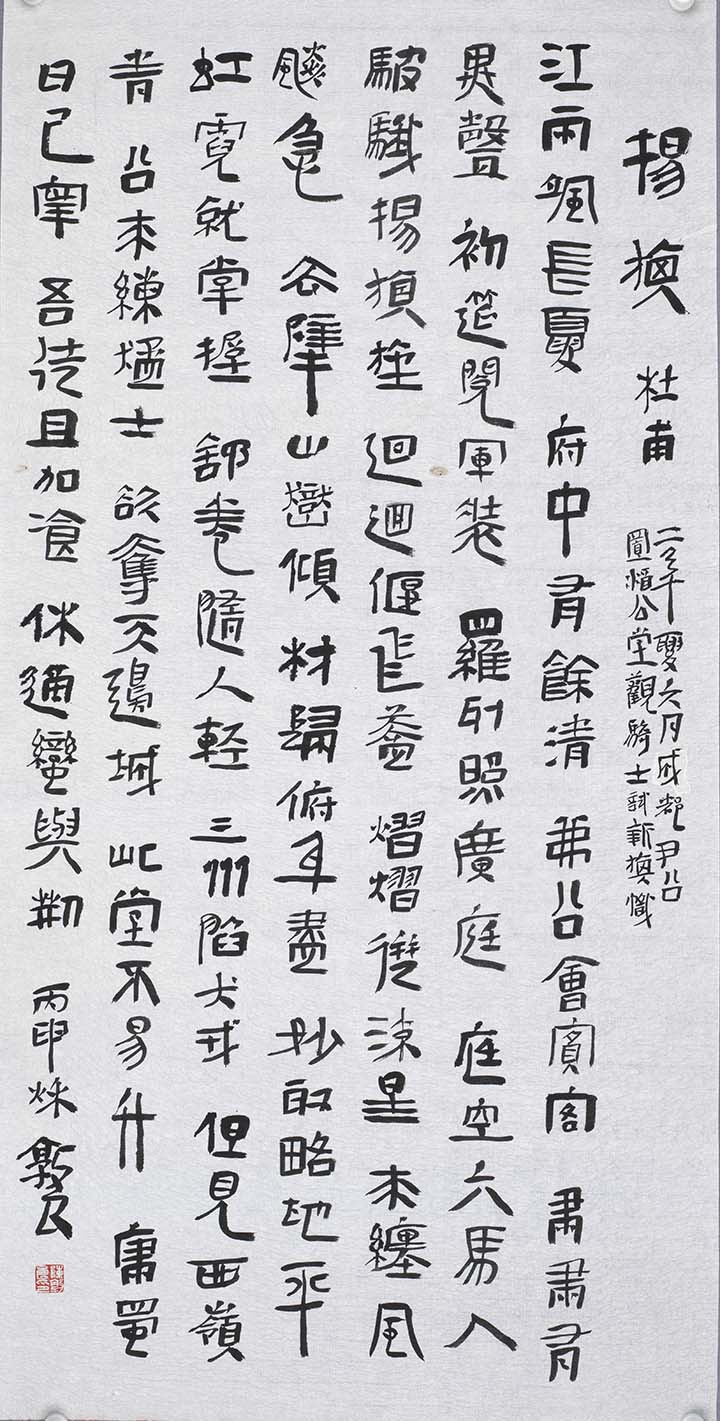 揚旗 杜甫
二年夏六月成都尹公
置酒公堂觀騎士試新旗幟
江雨颯長夏 府中有餘清 我公會賓客 肅肅有
異聲 初筵閱軍裝 羅列照廣庭 庭空六馬入
駊騀揚旗旌 迴迴偃飛蓋 熠熠迸流星 來纏風
飆急 去擘山嶽傾 材歸俯身盡 妙取略地平
虹霓就掌握 舒卷隨人輕 三州陷犬戎 但見西嶺
青 公來練猛士 欲奪天邊城 此堂不易升 庸蜀
日已寧 吾徒且加飡 休適蠻與荊 丙申秋